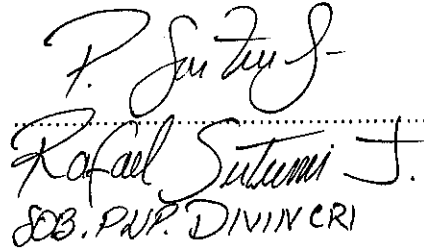 P.
Rafael Sutumi J.
SOB. PNP. DIVINCRI